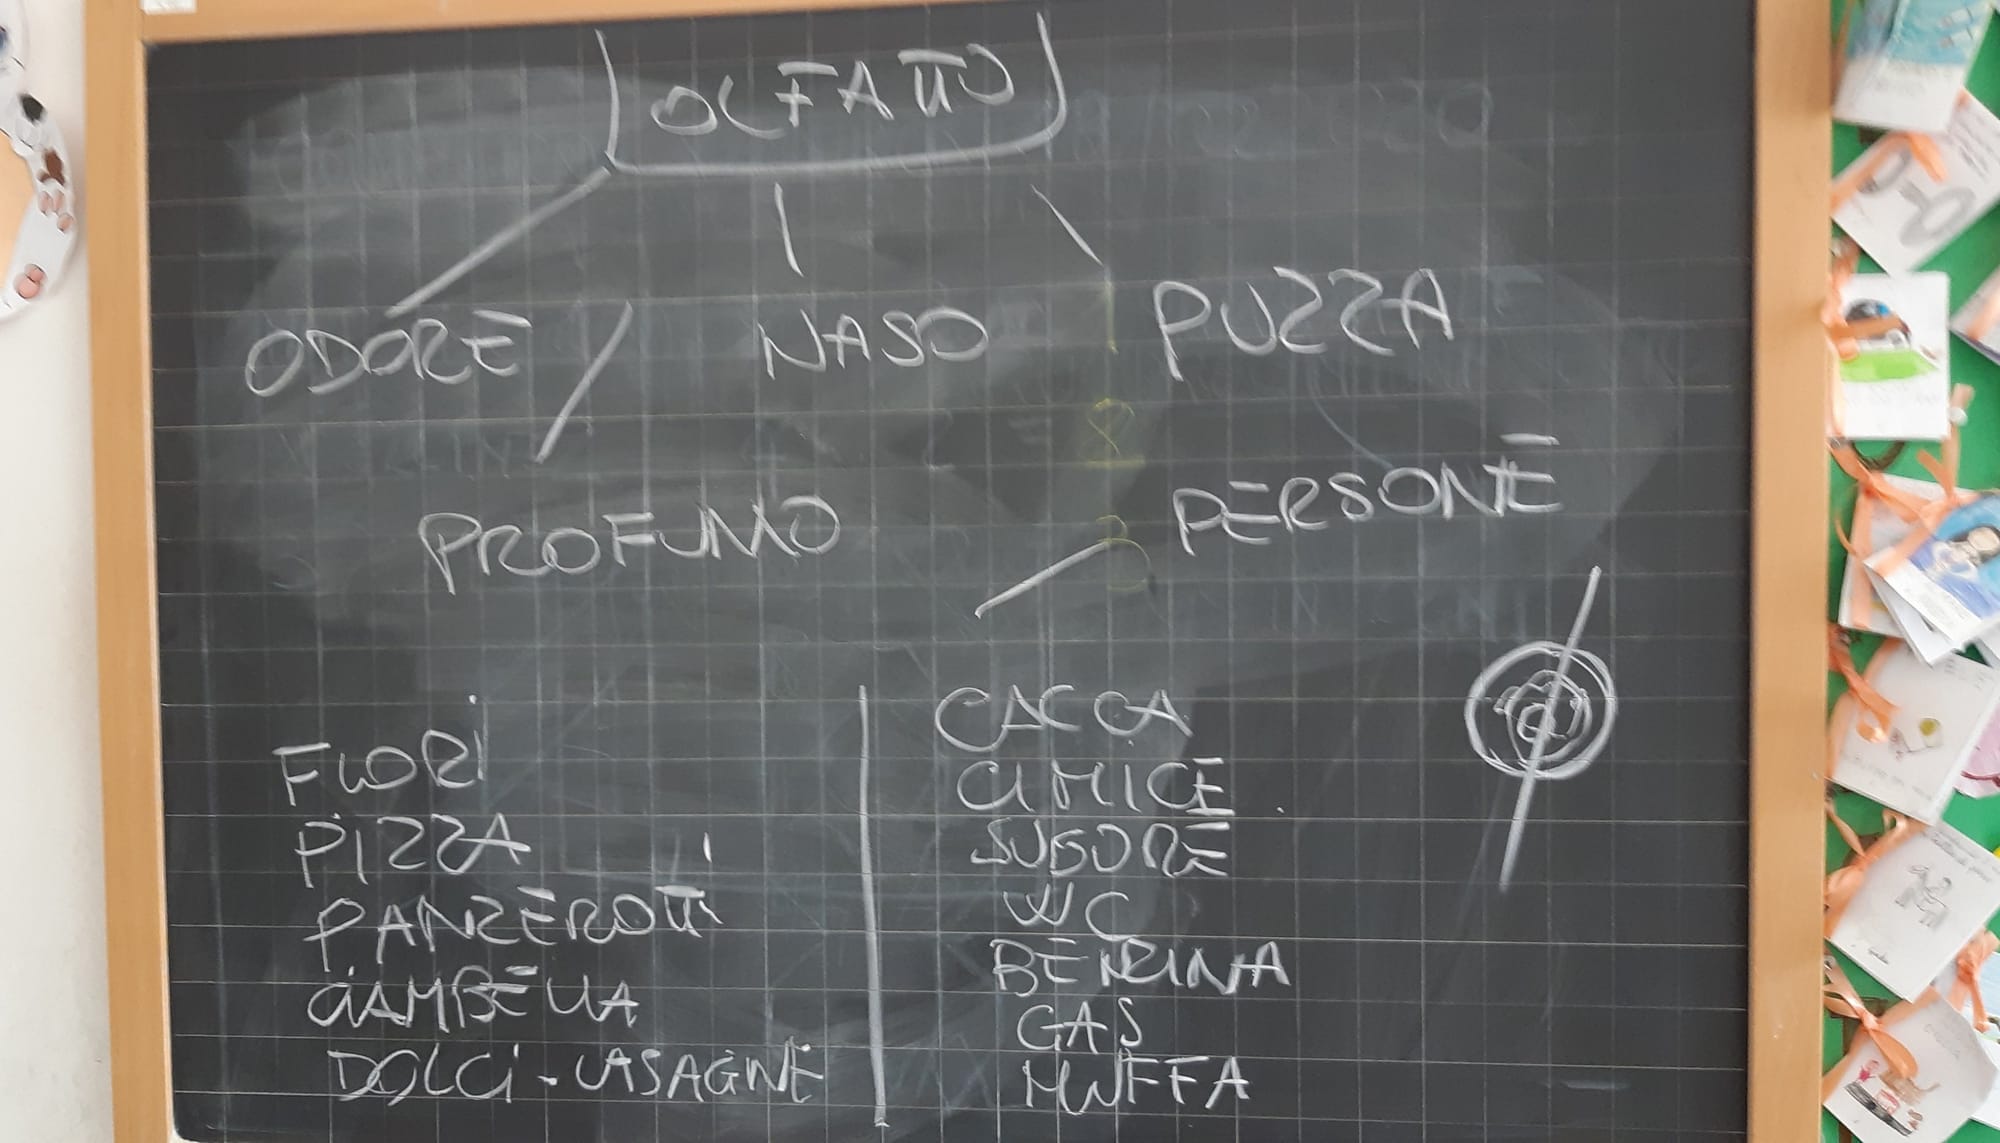 OLFATTO
ODORE NASO PUZZA
PROFUMO PERSONE
FIORI
PIZZA
PANZEROTTI
CIAMBELLA
DOLCI - LASAGNE
CACCA
CIMICE
SUDORE
WC
BENZINA
GAS
MUFFA